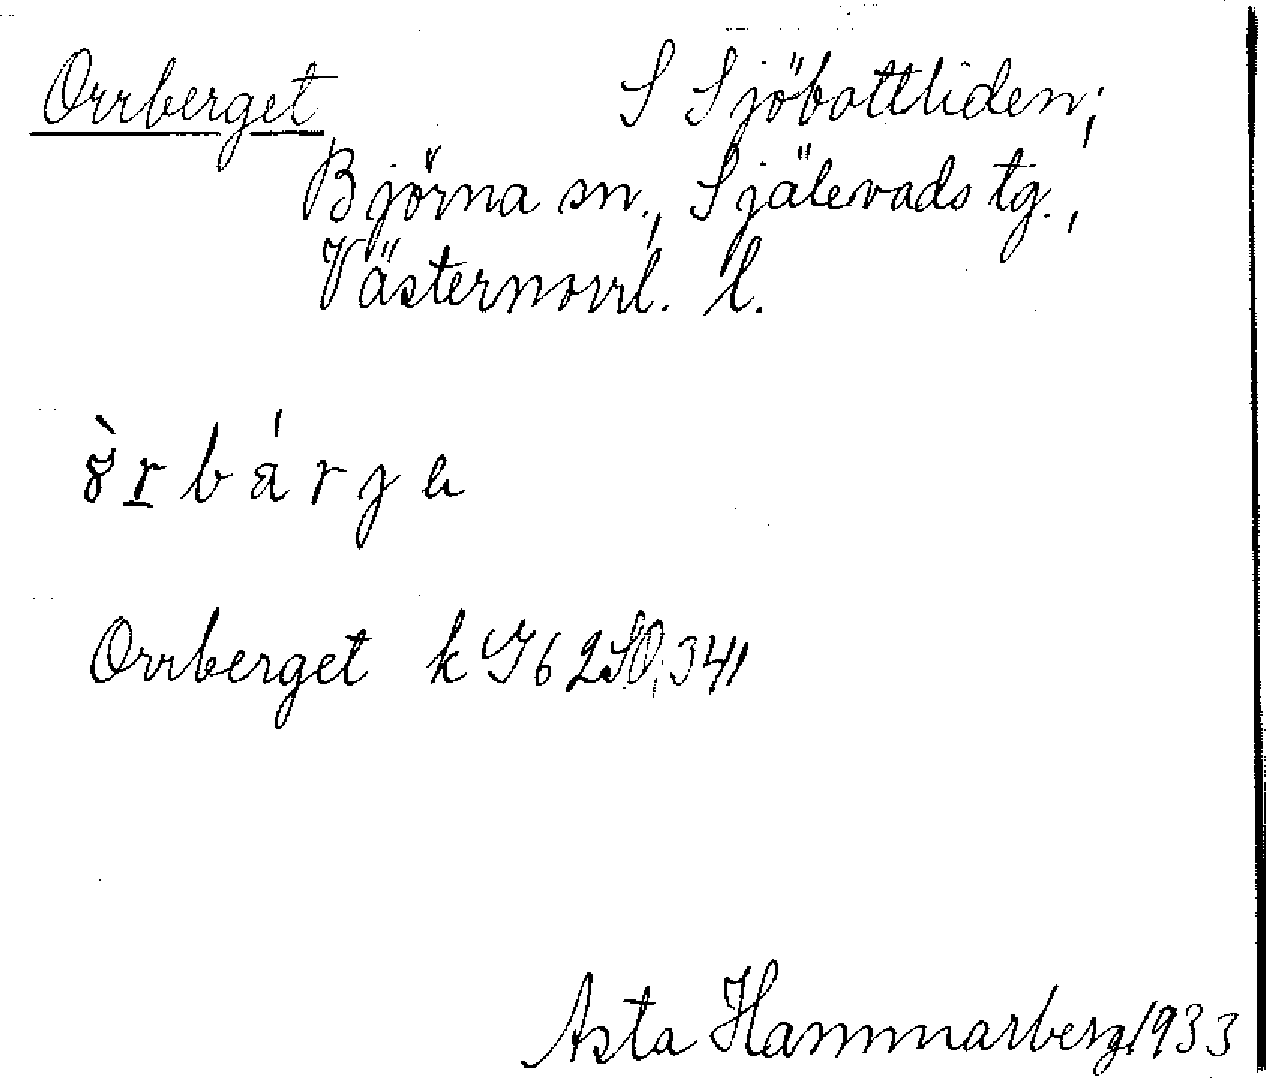 Orrberget S Sjöbottliden;
Björna sn., Själevads tg.,
Västernorrl. l.
bárje
Orrberget k I62SO,341
Asta Hammarberg 1933